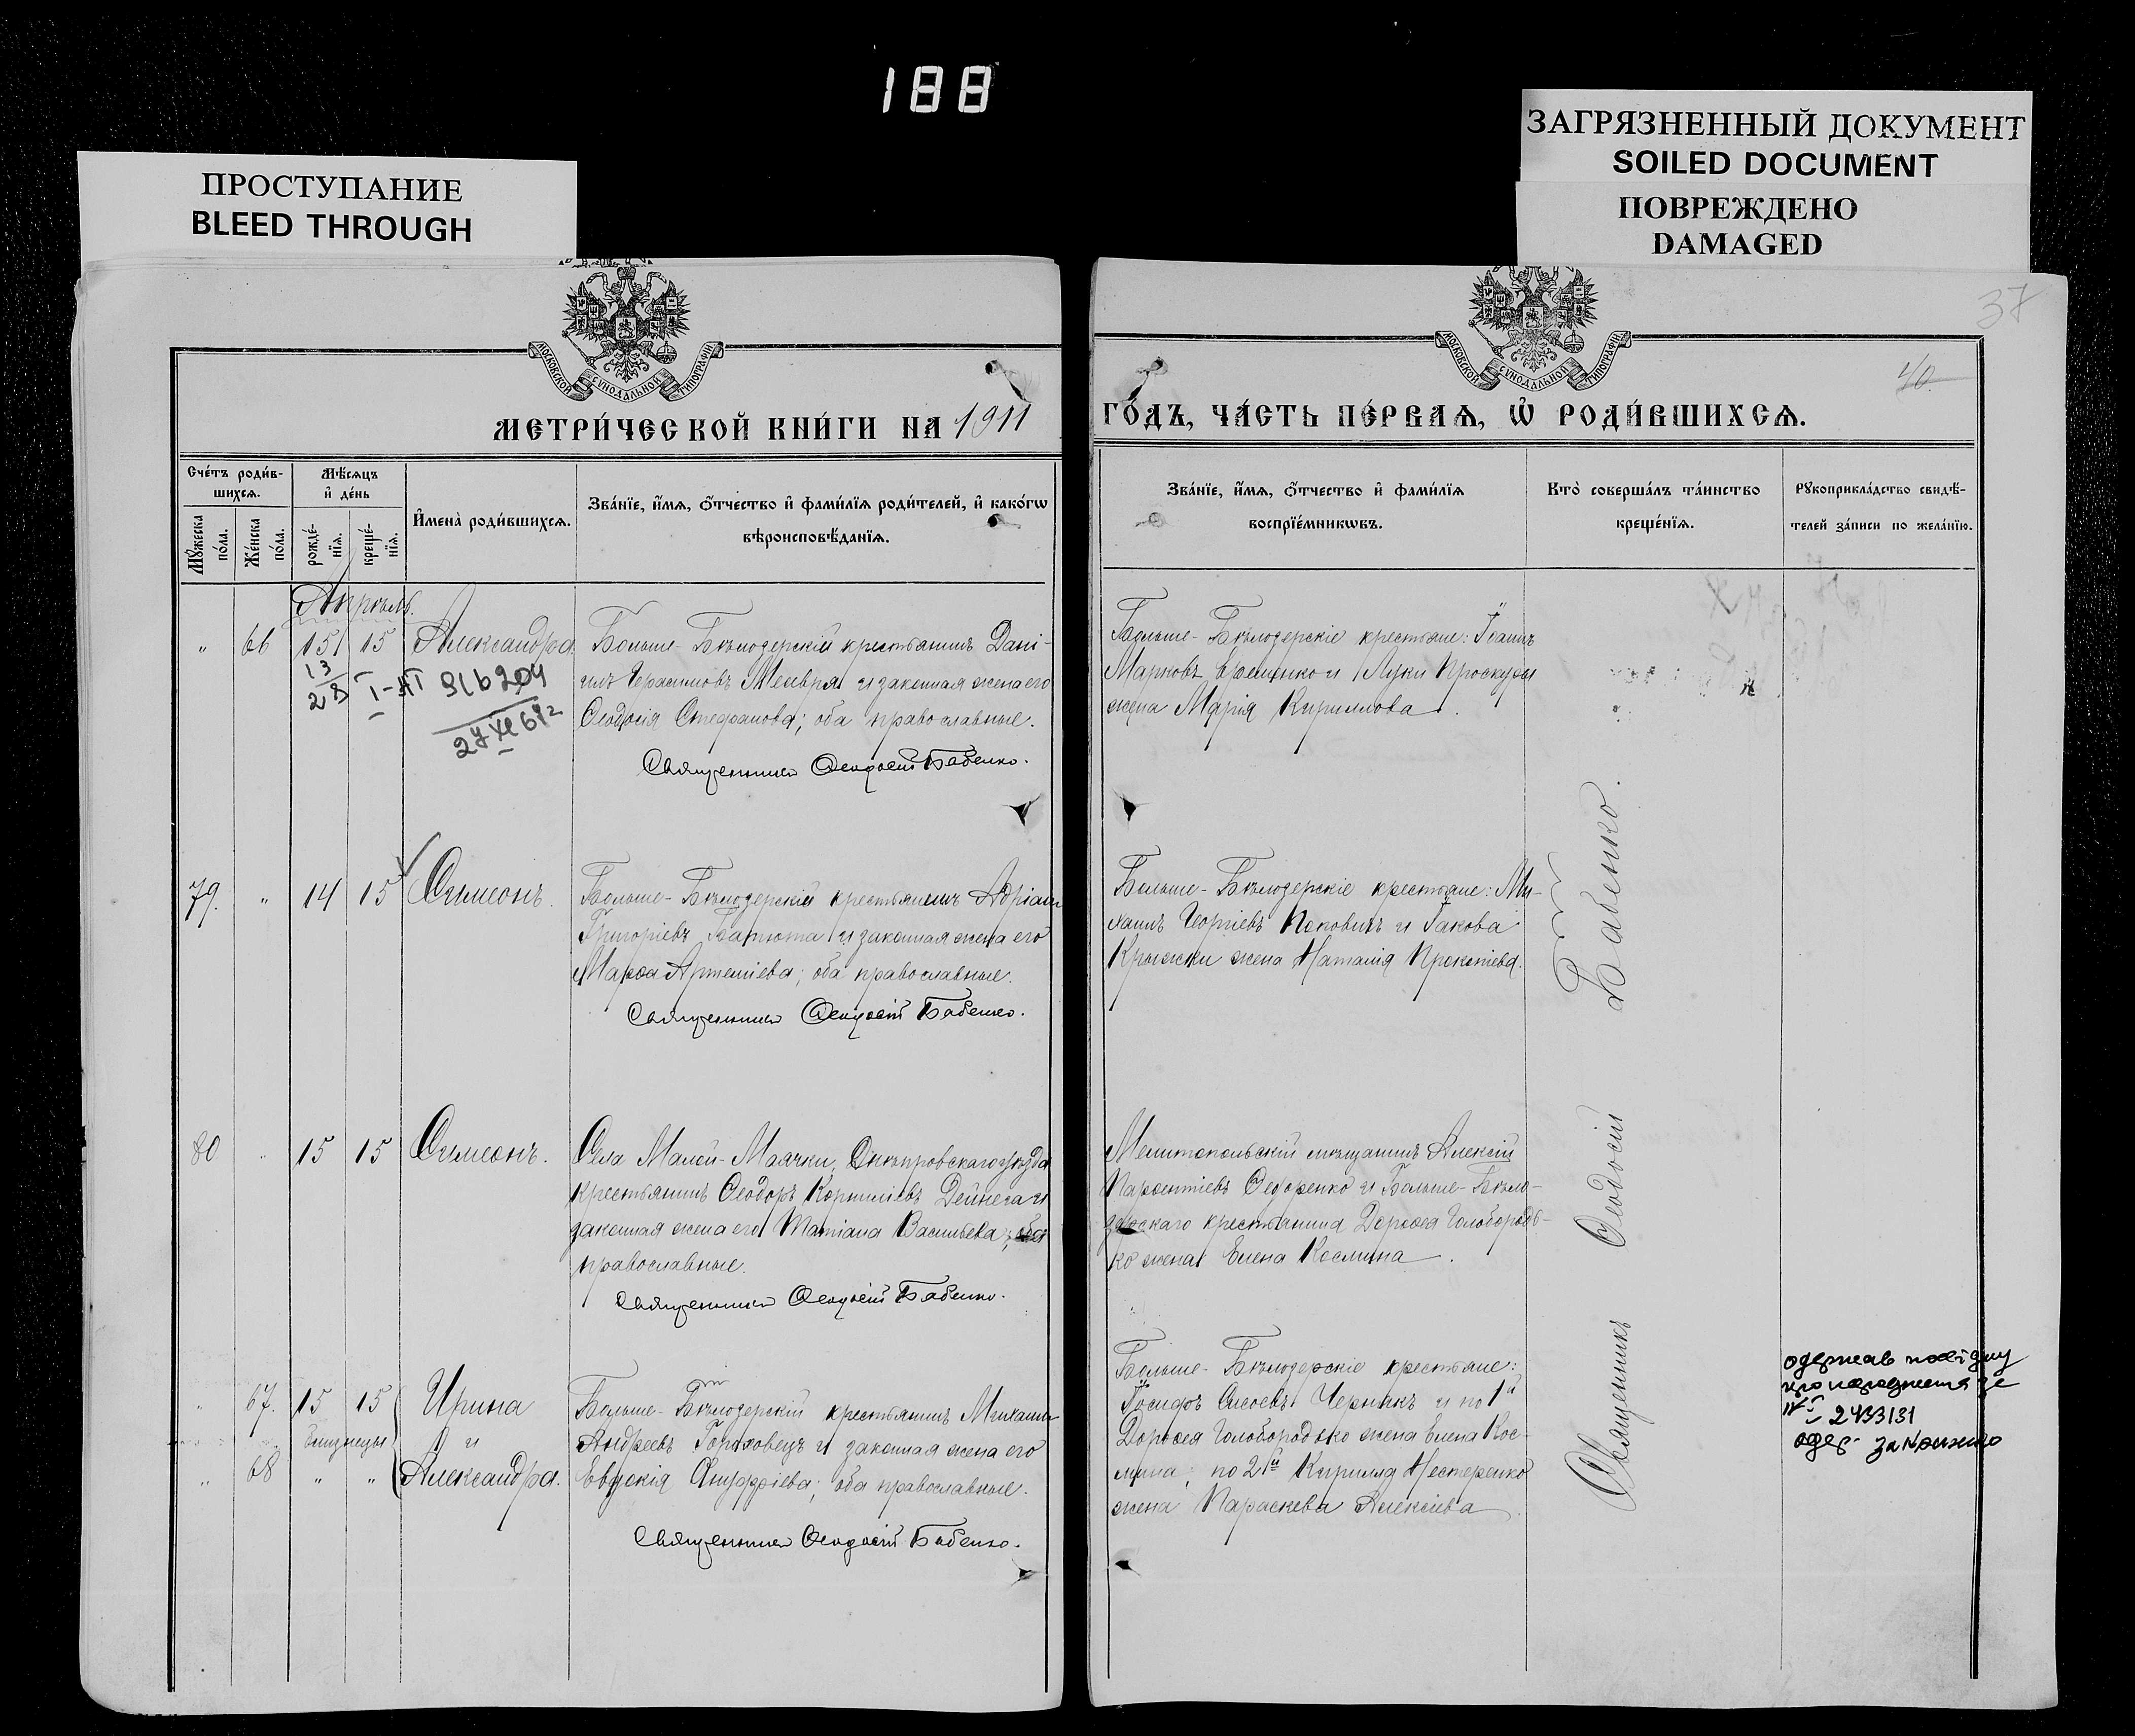 188
ПРОСТУПАНИЕ
BLEED THROUGH
ЗАГРЯЗНЕННЫЙ ДОКУМЕНТ
SOILED DOCUMENT
ПОВРЕЖДЕНО
DAMAGED
37
40.
МОСКОВСКОЙ СѴНОДАЛЬНОЙ ТИПОГРАФІИ
МОСКОВСКОЙ СѴНОДАЛЬНОЙ ТИПОГРАФІИ
МЕТРИ́ЧЕСКОЙ КНИ́ГИ НА 1911
ГО́ДЪ, ЧА́СТЬ ПЕ́РВАѦ, Ѡ҆ РОДИ́ВШИХСѦ.
Сче́тъ роди́в-
шихсѧ.
Мꙋ́жеска
по́ла.
Же́нска
по́ла.
Мѣ́сѧцъ
и҆ де́нь
рожде́-
нїѧ.
креще́-
нїѧ.
И҆мена̀ роди́вшихсѧ.
Зва́нїе, и҆́мѧ, ѻ҆́тчество и҆ фами́лїѧ роди́телей, и҆ како́гѡ
вѣроисповѣ́данїѧ.
Зва́нїе, и҆́мѧ, ѻ҆́тчество и҆ фами́лїѧ
воспрїе́мникѡвъ.
Кто̀ соверша́лъ та́инство
креще́нїѧ.
Рꙋкоприкла́дство свидѣ́-
телей за́писи по жела́нїю.
Апрѣль.
" 66 15 15 Александра
Больше-Бѣлозерскій крестьянинъ Дані-
илъ Герасимовъ и законная жена его
Ѳеодосія Стефанова; оба православные.
Священникъ Ѳеодосій Бабенко.
Больше-Бѣлозерскіе крестьяне: Іоаннъ
Марковъ и Луки Проскуры
жена Марія Кириллова.
79. " 14 15 Симеонъ.
Больше-Бѣлозерскій крестьянинъ Адріанъ
Григоріевъ и законная жена его
Марѳа Артеміева; оба православные.
Священникъ Ѳеодосій Бабенко.
Больше-Бѣлозерскіе крестьяне: Ми-
хаилъ Георгіевъ Поповичъ и Іакова
Крыжки жена Наталія Прокопіева.
80 " 15 15 Симеонъ.
Села Малой-Маячки, Днѣпровскаго уѣзда
крестьянинъ Ѳеодоръ Корниліевъ Дейнега и
законная жена его Татіана Васильева; оба
православные.
Священникъ Ѳеодосій Бабенко.
Мелитопольскій мѣщанинъ Алексій
Парѳентіевъ Ѳедоренко и Больше-Бѣло-
зерскаго крестьянина Дороѳея Голобородь-
ко жена Елена Космина.
" 67. 15 15 Ирина
близнецы и
" 68 " " Александра.
Больше-Бѣлозерскій крестьянинъ Михаилъ
Андреевъ Горховецъ и законная жена его
Евдокія Онуфріева; оба православные.
Священникъ Ѳеодосій Бабенко.
Больше-Бѣлозерскіе крестьяне:
Іосифъ Сисоевъ Чернякъ и по 1й
Дороѳея Голобородько жена Елена Кос-
мина; по 2й Кирилла Нестеренко
жена Параскева Алексіева
Священникъ Ѳеодосій Бабенко.
одержав
про народження
2433131